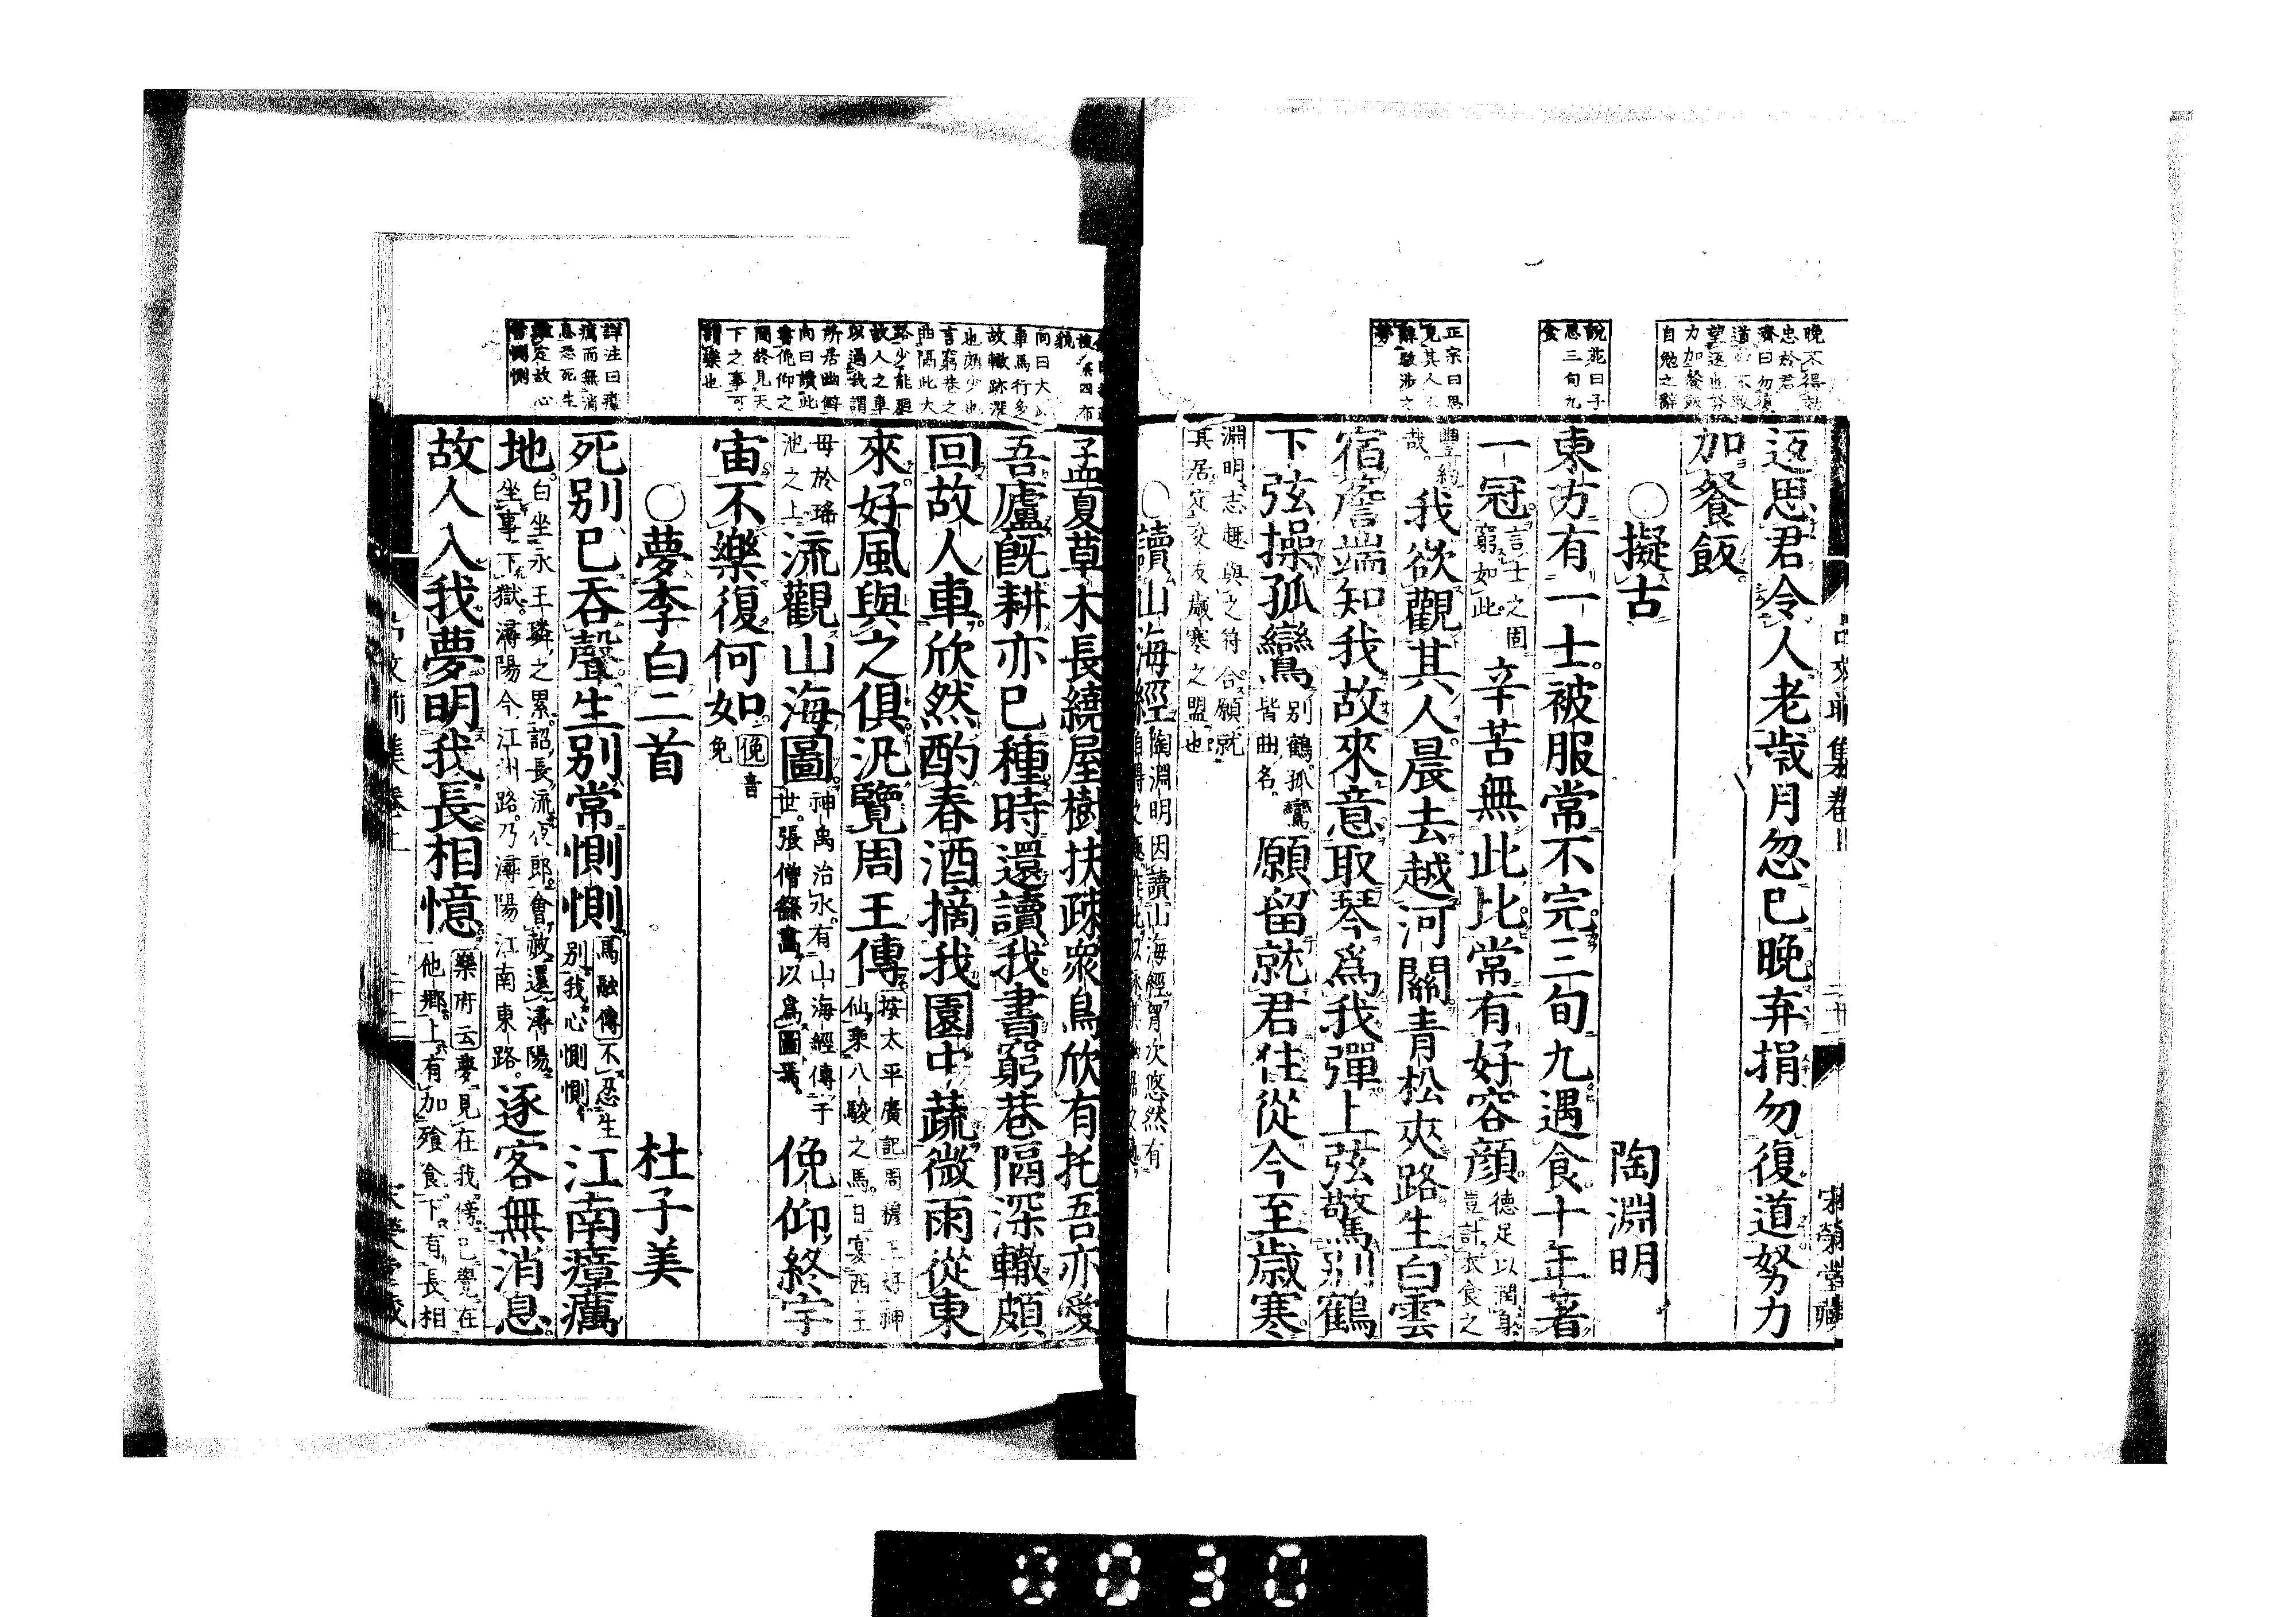 晚不得
忠於君
濟曰勿復
望返也
力加餐飯
自勉之辭
返思君令人老歲月忽已晚弃捐勿復道努力
加餐飯
○擬古　陶淵明
說苑曰子
思三旬九
食
東方有一士被服常不完三旬九遇食十年著
一冠言士之固窮如此辛苦無此比常有好容顏德足以潤身豈計衣食之
正宗曰
見其人
豐約哉我欲觀其人晨去越河關青松夾路生白雲
宿簷端知我故來意取琴爲我彈上弦驚別鶴
下弦操孤鸞別鶴孤鸞皆曲名願留就君住從今至歲寒
淵明志趣與之符合願就其居定交友歲寒之盟也
○讀山海經陶淵明因讀山海經胷次悠然有
向曰大
車馬行多
故轍跡深
也頗少也
言窮巷之
曲隔此大
路少能廻
故人之車
以過我謂
所居幽僻
向曰讀此
書俛仰之
間終見天
下之事可
謂樂也
孟夏草木長繞屋樹扶疎衆鳥欣有托吾亦愛
吾廬既耕亦已種時還讀我書窮巷隔深轍頗
回故人車欣然酌春酒摘我園中蔬微雨從東
來好風與之俱汎覽周王傳按太平廣記周穆王好神仙乘八駿之馬日宴西王
母於瑤池之上流觀山海圖神禹治水有山海經傳于世張僧繇畫以爲圖焉俛仰終宇
宙不樂復何如俛音免
○夢李白二首　杜子美
詳注曰瘴
癘而無消
息恐死生
難定故心
常惻惻
死别已吞聲生別常惻惻馬融傳不忍生別我心惻惻江南瘴癘
地白坐永王璘之累詔長流夜郎會赦還潯陽坐事下獄潯陽今江洲路乃潯陽江南東路逐客無消息
故人入我夢明我長相憶樂府云夢見在我傍已覺在他鄉上有加飡食下有長相